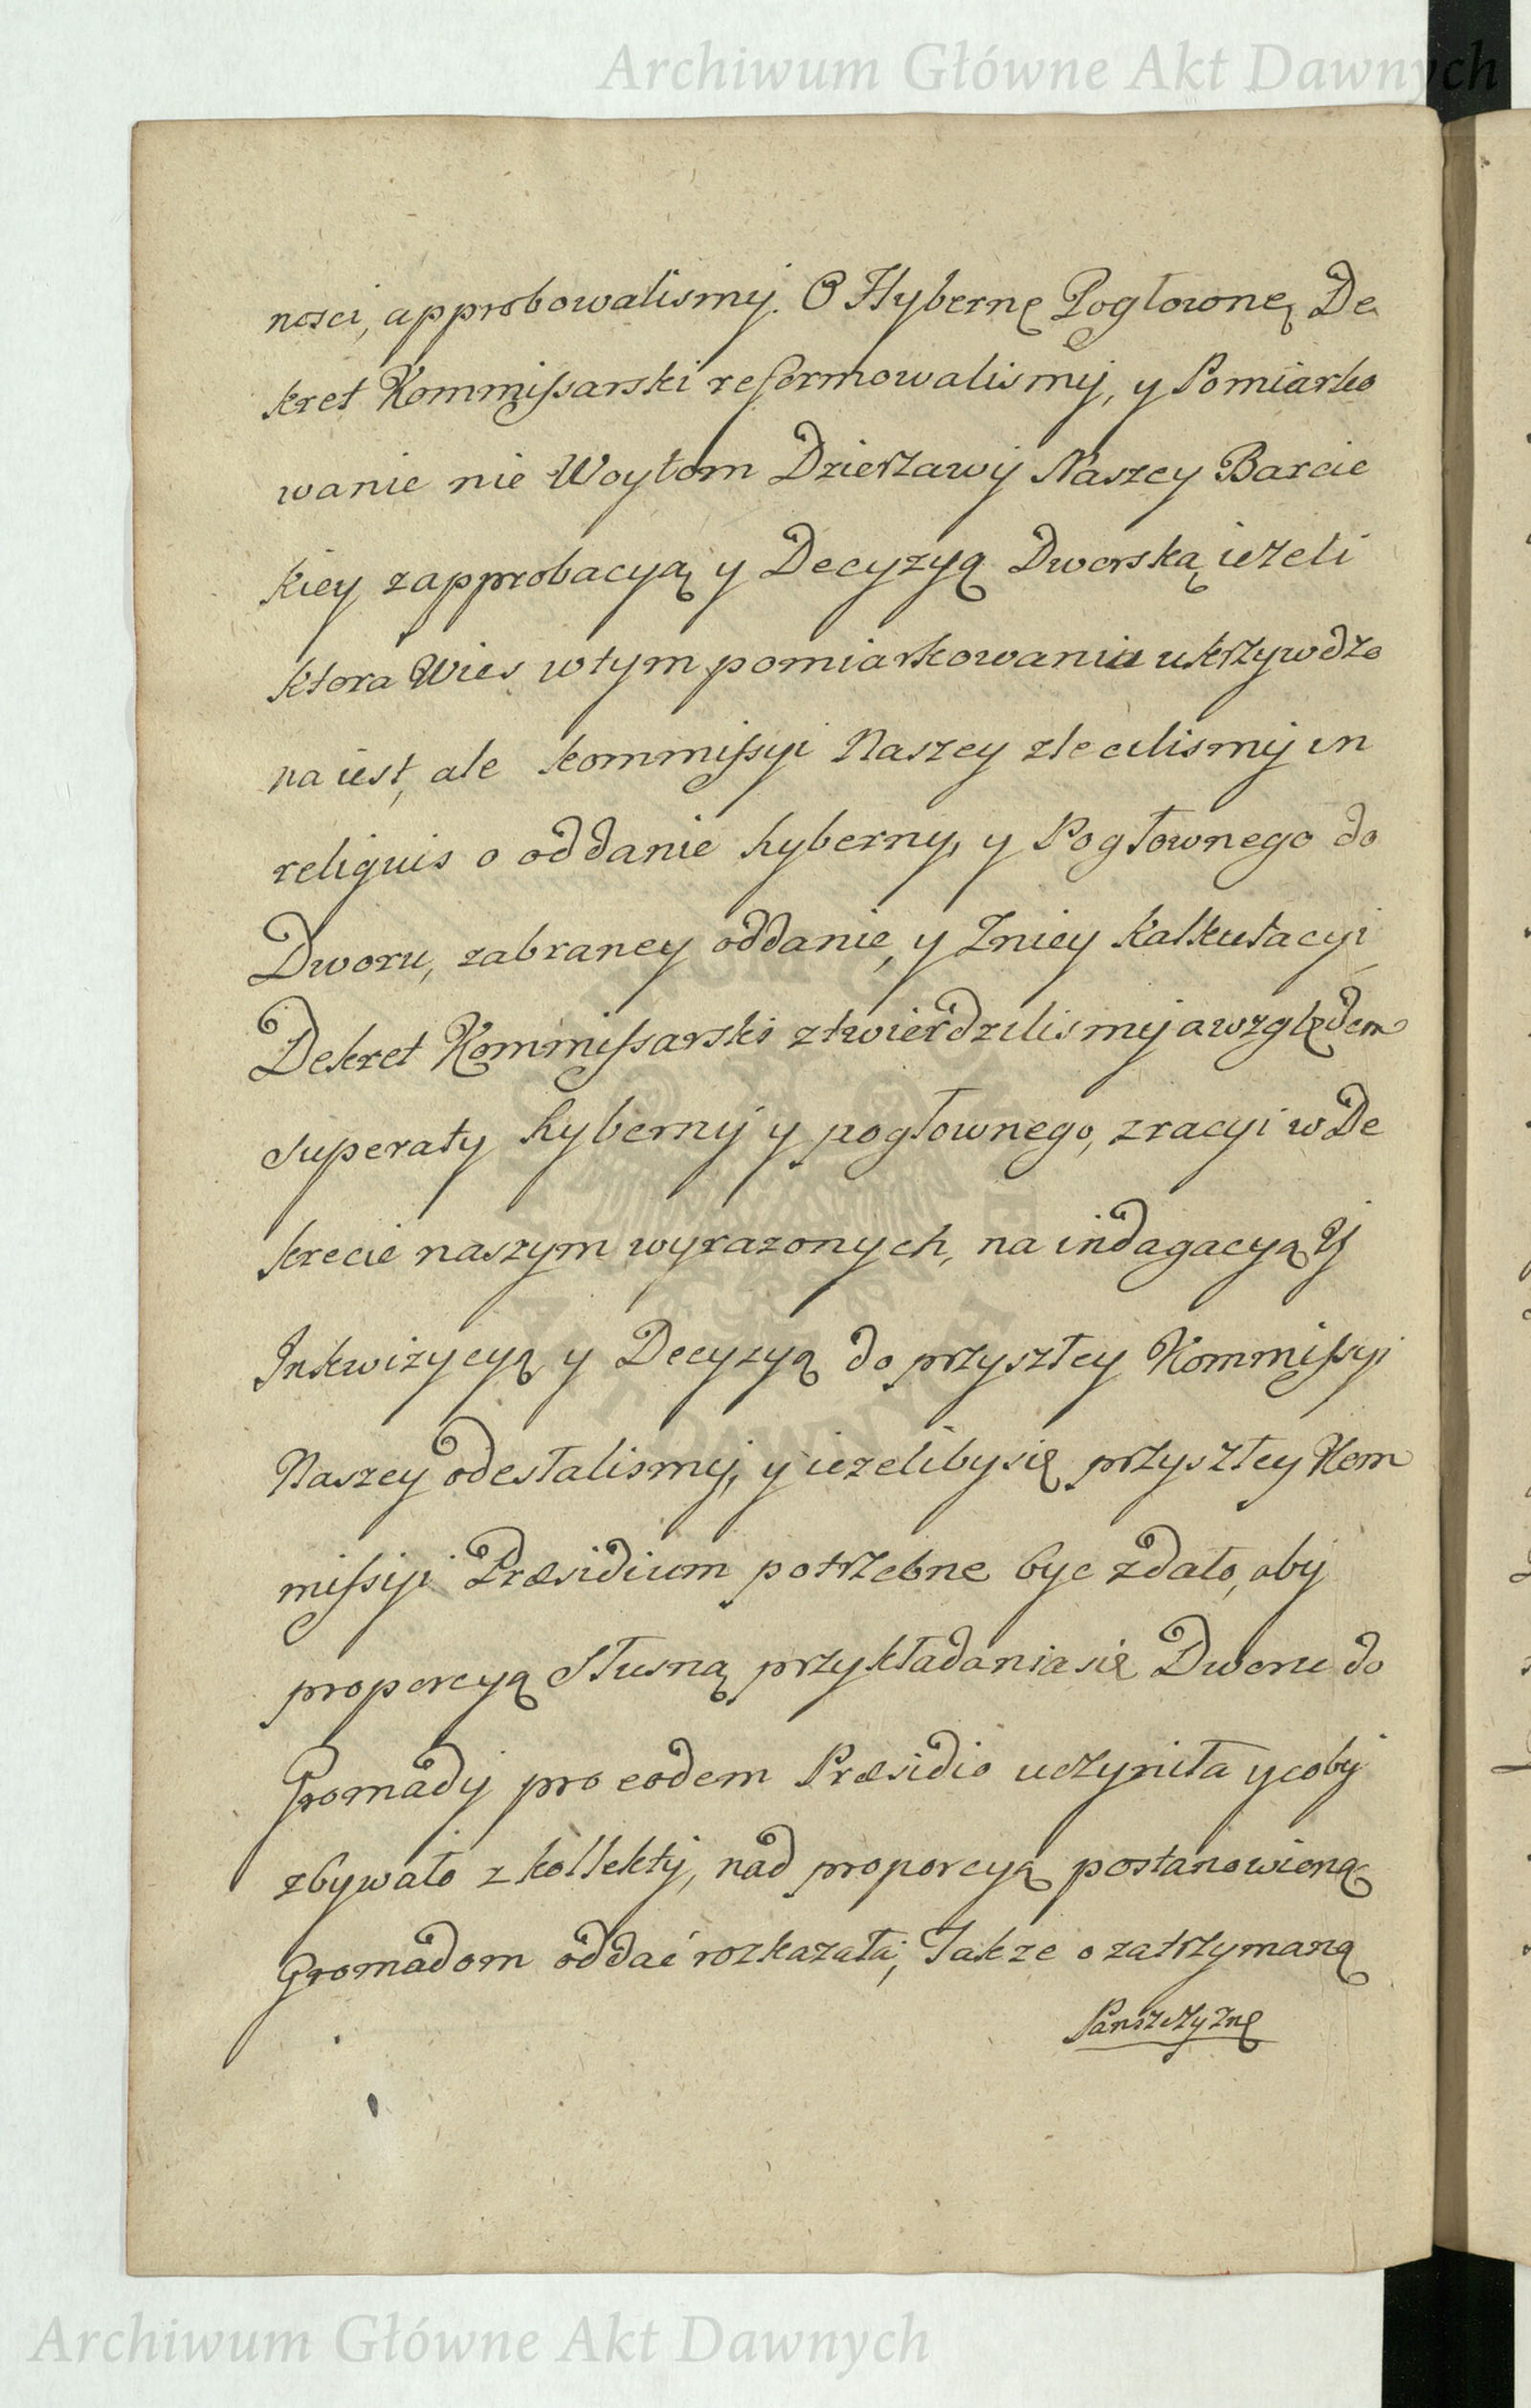 Archiwum Główne Akt Dawnych
nosci, approbowalismy. O Hybernę Pogłownę De
kret Kommissarski reformowalismy, y Pomiarko
wanie nie Woytom Dzierzawy Naszey Barcie
kiey zapprobacyą y Decyzyą Dworską iezeli
ktora Wies wtym pomiarkowaniu ukrzywdzo
na iest, ale kommissyi Naszey zlecilismy in
reliquis o oddanie hyberny, y Pogłownego do
Dworu, zabraney oddanie, y Zniey Kalkulacyi
Dekret Kommissarski ztwierdzilismy a względem
superaty hyberny y pogłownego, zracyi w De
krecie naszym wyrazonych, na indagacyą Y
Inkwizycyą y Decyzyą do przyszłey Kommissyi
Naszey odesłalismy, y iezeliby się przyszłey Kom
missyi Præsidium potrzebne byc zdało, aby
proporcyą Słusną przykładania się Dworu do
Gromady pro eodem Præsidio uczyniła y coby
zbywało z kollekty, nad proporcyą postanowioną
Gromadom oddać rozkazała, Takze o zatrzymaną
Panszczyznę
Archiwum Główne Akt Dawnych